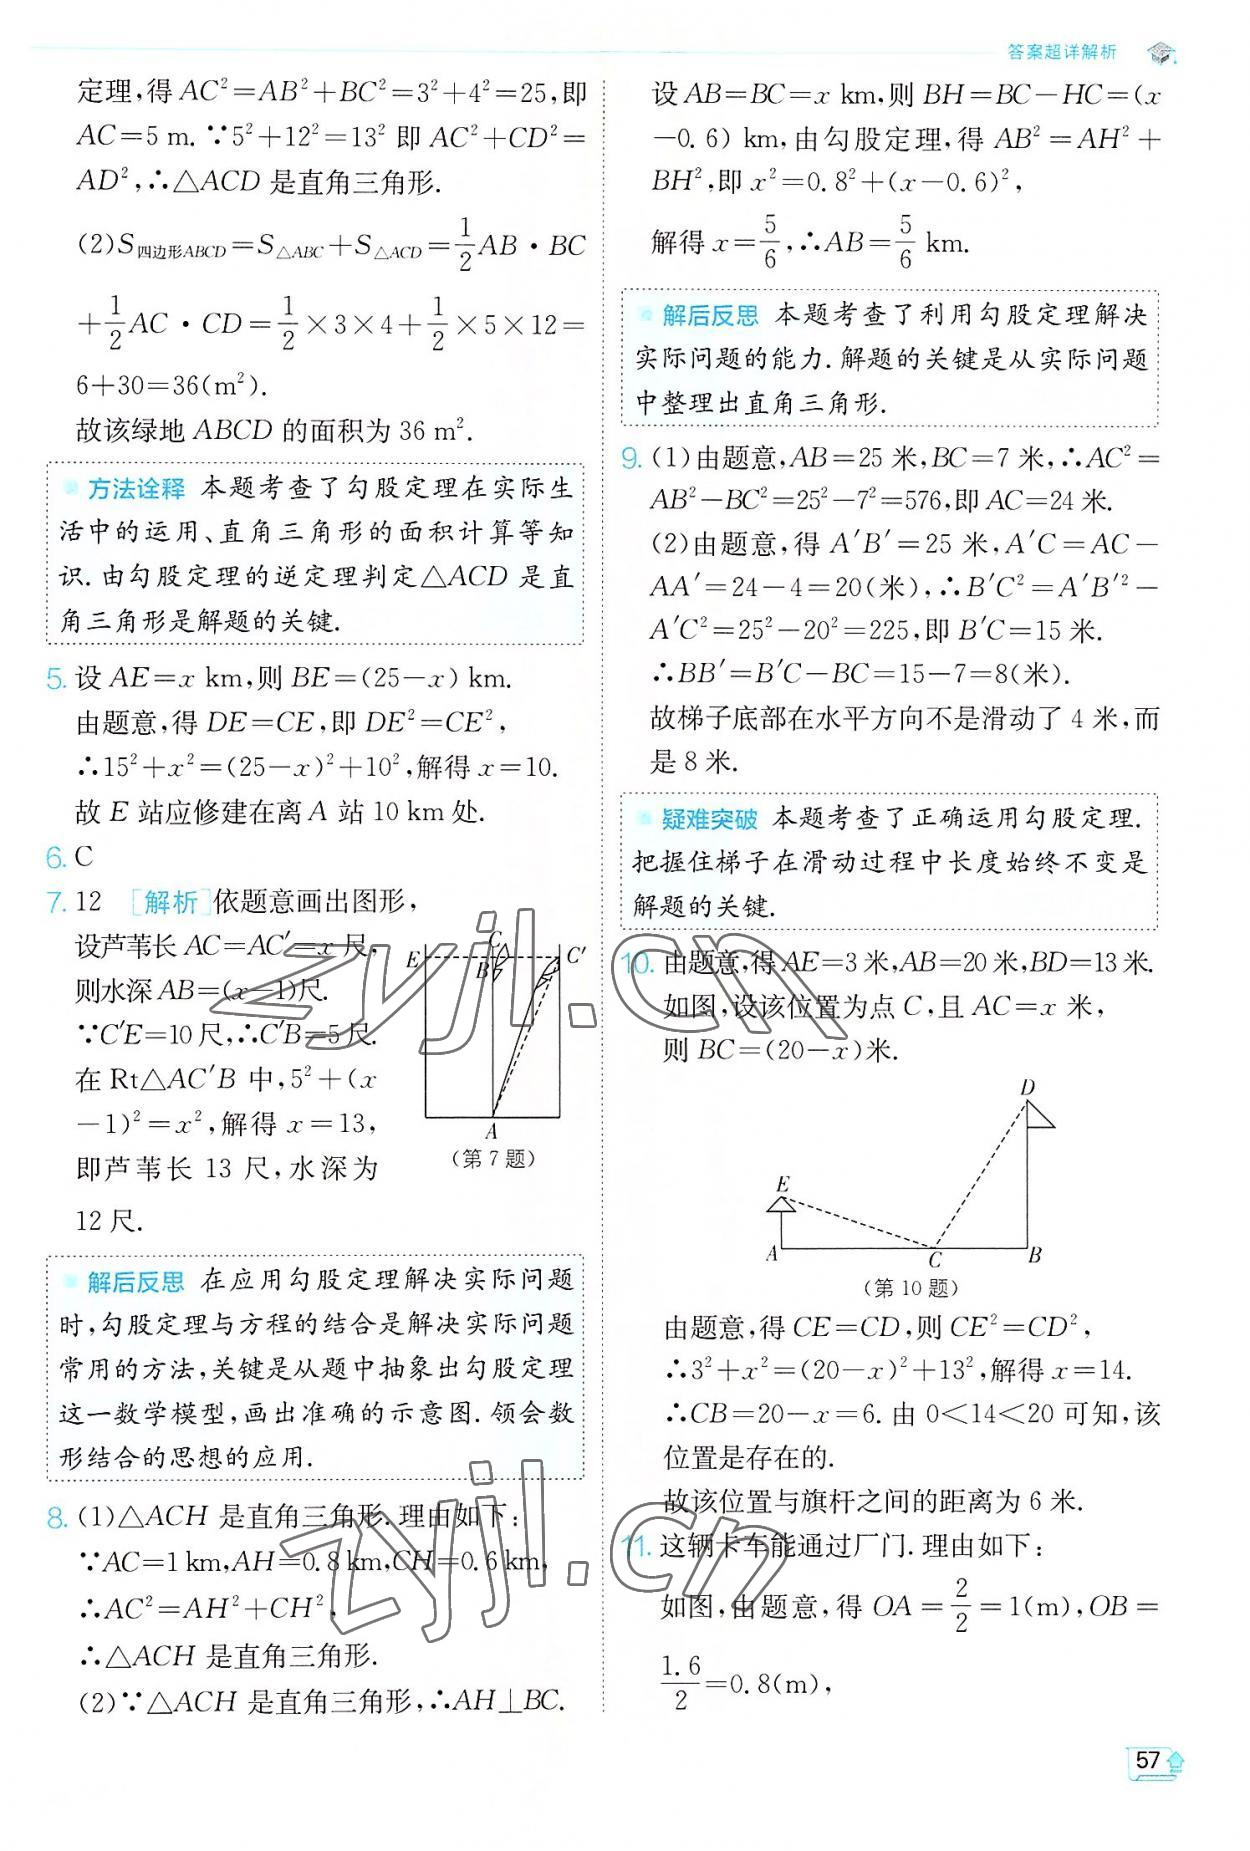 答案超详解析
定理,得 AC²=AB²+BC²=3²+4²=25,即
AC=5 m. ∵5²+12²=13² 即 AC²+CD²=
AD²,∴△ACD 是直角三角形.
(2)S四边形ABCD=S△ABC+S△ACD=1/2AB·BC
+1/2AC·CD=1/2×3×4+1/2×5×12=
6+30=36(m²).
故该绿地 ABCD 的面积为 36 m².
方法诠释 本题考查了勾股定理在实际生
活中的运用、直角三角形的面积计算等知
识. 由勾股定理的逆定理判定△ACD 是直
角三角形是解题的关键.
5. 设 AE=x km,则 BE=(25-x) km.
由题意,得 DE=CE,即 DE²=CE²,
∴15²+x²=(25-x)²+10²,解得 x=10.
故 E 站应修建在离 A 站 10 km 处.
6. C
7. 12 [解析]依题意画出图形,
设芦苇长 AC=AC′=x 尺,
则水深 AB=(x-1)尺.
∵C′E=10 尺,∴C′B=5 尺.
在 Rt△AC′B 中,5²+(x
-1)²=x²,解得 x=13,
即芦苇长 13 尺,水深为
12 尺.
E
C
B
C′
A
(第 7 题)
解后反思 在应用勾股定理解决实际问题
时,勾股定理与方程的结合是解决实际问题
常用的方法,关键是从题中抽象出勾股定理
这一数学模型,画出准确的示意图. 领会数
形结合的思想的应用.
8. (1)△ACH 是直角三角形. 理由如下:
∵AC=1 km,AH=0.8 km,CH=0.6 km,
∴AC²=AH²+CH²,
∴△ACH 是直角三角形.
(2)∵△ACH 是直角三角形,∴AH⊥BC.
设 AB=BC=x km,则 BH=BC-HC=(x
-0.6) km,由勾股定理,得 AB²=AH²+
BH²,即 x²=0.8²+(x-0.6)²,
解得 x=5/6,∴AB=5/6 km.
解后反思 本题考查了利用勾股定理解决
实际问题的能力. 解题的关键是从实际问题
中整理出直角三角形.
9. (1)由题意,AB=25 米,BC=7 米,∴AC²=
AB²-BC²=25²-7²=576,即 AC=24 米.
(2)由题意,得 A′B′=25 米,A′C=AC-
AA′=24-4=20(米),∴B′C²=A′B′²-
A′C²=25²-20²=225,即 B′C=15 米.
∴BB′=B′C-BC=15-7=8(米).
故梯子底部在水平方向不是滑动了 4 米,而
是 8 米.
疑难突破 本题考查了正确运用勾股定理.
把握住梯子在滑动过程中长度始终不变是
解题的关键.
10. 由题意,得 AE=3 米,AB=20 米,BD=13 米.
如图,设该位置为点 C,且 AC=x 米,
则 BC=(20-x)米.
D
E
A
C
B
(第 10 题)
由题意,得 CE=CD,则 CE²=CD²,
∴3²+x²=(20-x)²+13²,解得 x=14.
∴CB=20-x=6. 由 0<14<20 可知,该
位置是存在的.
故该位置与旗杆之间的距离为 6 米.
11. 这辆卡车能通过厂门. 理由如下:
如图,由题意,得 OA=2/2=1(m),OB=
1.6/2=0.8(m),
57
zyjl.cn
zyjl.cn